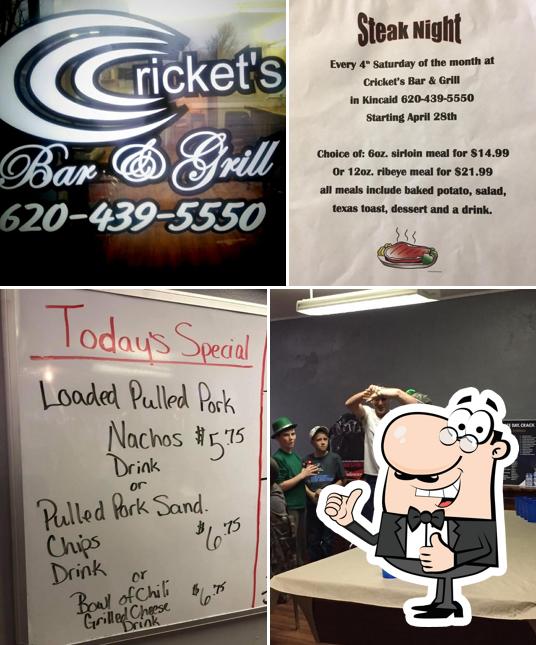 Cricket's
Bar & Grill
620-439-5550
Steak Night
Every 4th Saturday of the month at
Cricket's Bar & Grill
in Kincaid 620-439-5550
Starting April 28th
Choice of: 6oz. sirloin meal for $14.99
Or 12oz. ribeye meal for $21.99
all meals include baked potato, salad,
texas toast, dessert and a drink.
Today's Special
Loaded Pulled Pork
Nachos $5.75
Drink
or
Pulled Pork Sand.
Chips $6.75
Drink
or
Bowl of Chili $6.75
Grilled Cheese
Drink